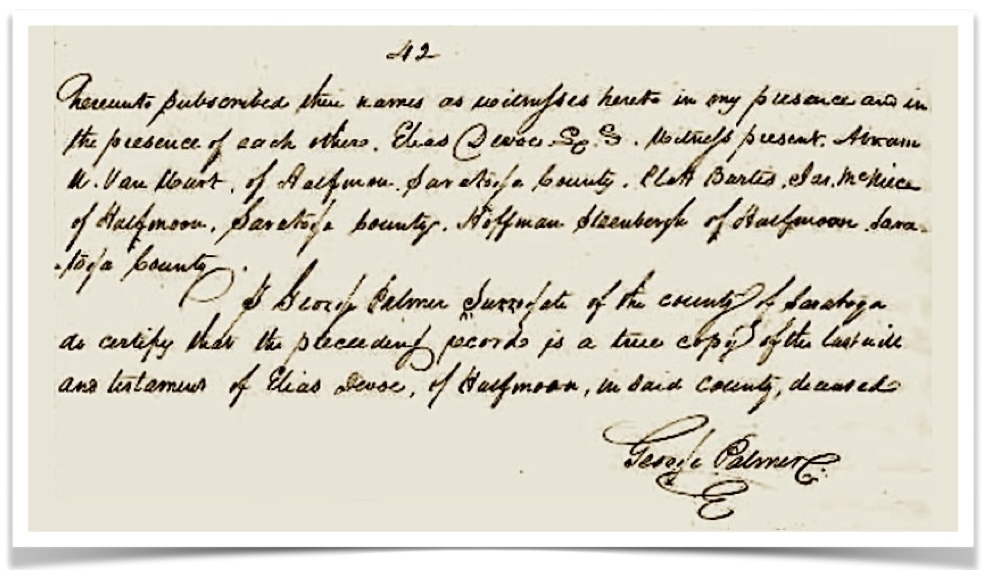 42
hereunto subscribed their names as witnesses hereto in my presence and in
the presence of each other. Elias Devoe L. S. Witness present. Abram
Van of Halfmoon, Saratoga County. Platt Jas. McNiece
of Halfmoon, Saratoga County. Hoffman Steenbergh of Halfmoon Sara-
toga County.
I George Palmer Surrogate of the county of Saratoga
do certify that the preceeding record is a true copy of the last will
and testament of Elias Devoe, of Halfmoon, in said county, deceased
George Palmer